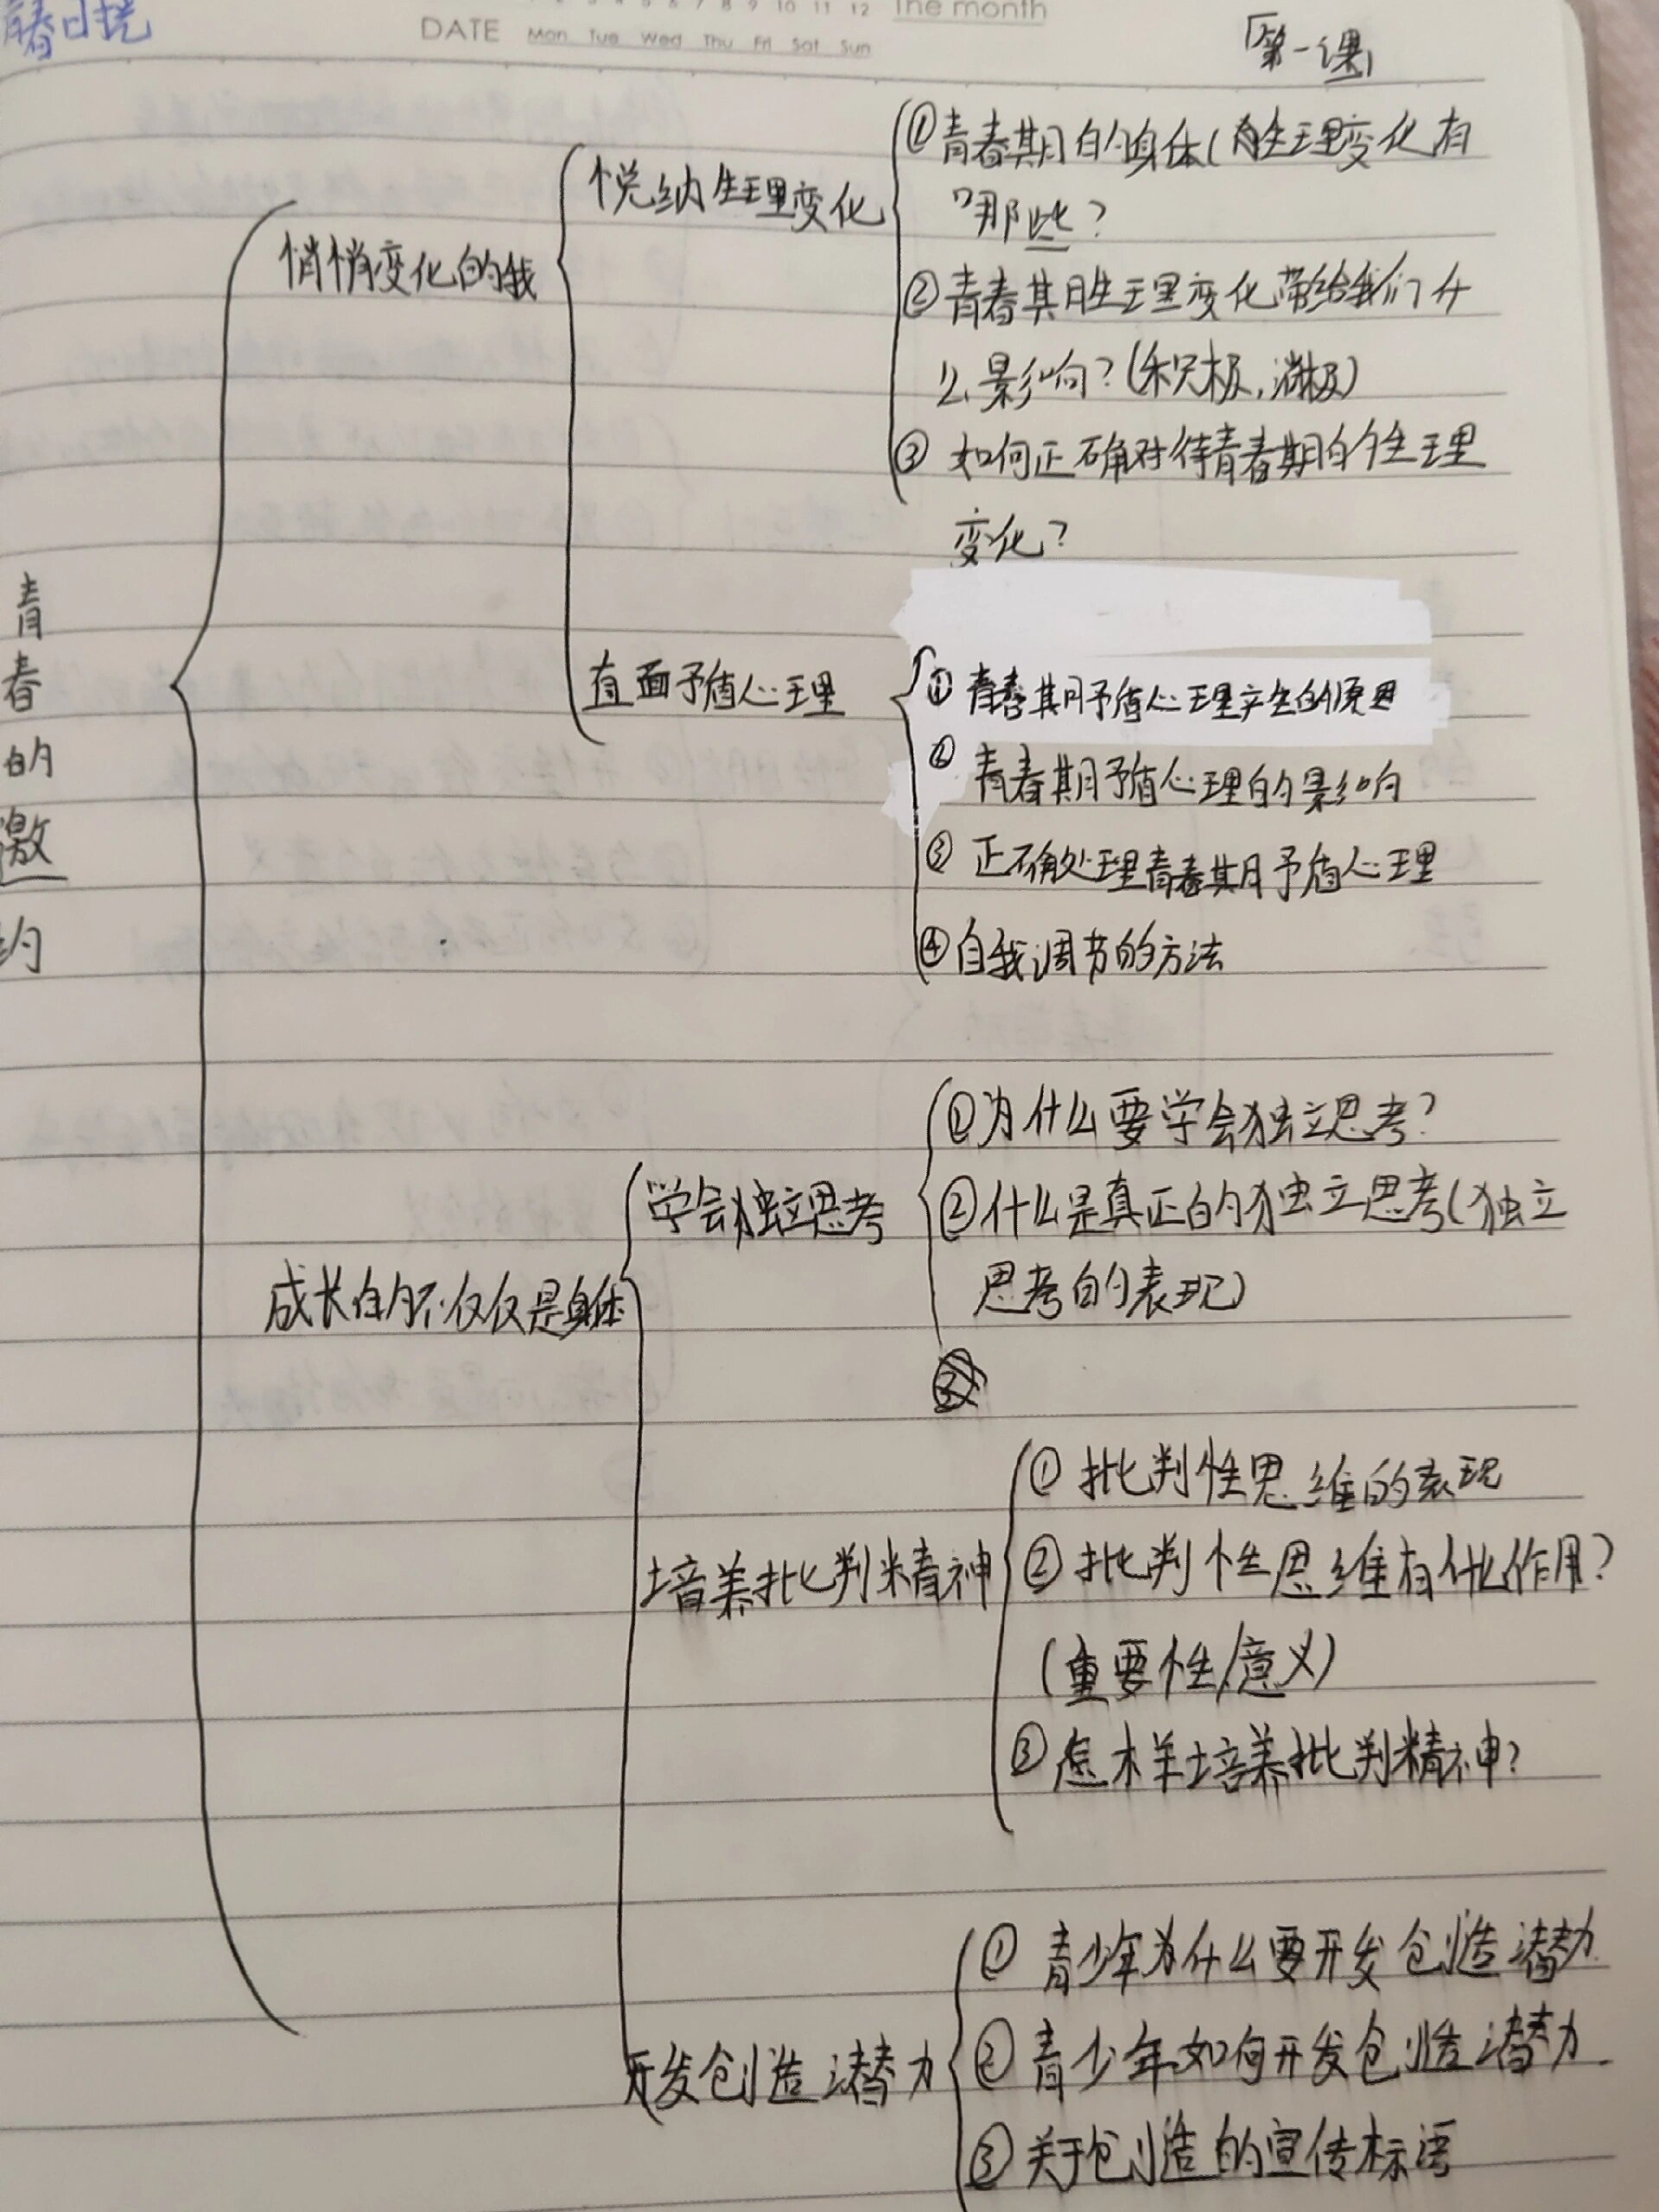 DATE
Mon Tue Wed Thu Fri Sat Sun
7 8 9 10 11 12 The month
「第一课」
青春的邀约
悄悄变化的我
悦纳生理变化
①青春期的身体(生理变化有
哪些?
②青春期生理变化带给我们什
么影响?(积极,消极)
③如何正确对待青春期的生理
变化?
直面予盾心理
①青春期予盾心理产生的原因
②青春期予盾心理的影响
③正确处理青春期予盾心理
④自我调节的方法
成长的不仅仅是身体
学会独立思考
①为什么要学会独立思考?
②什么是真正的独立思考(独立
思考的表现)
培养批判精神
①批判性思维的表现
②批判性思维有什么作用?
(重要性/意义)
③怎样培养批判精神?
开发创造潜力
①青少年为什么要开发创造潜力
②青少年如何开发创造潜力
③关于创造的宣传标语